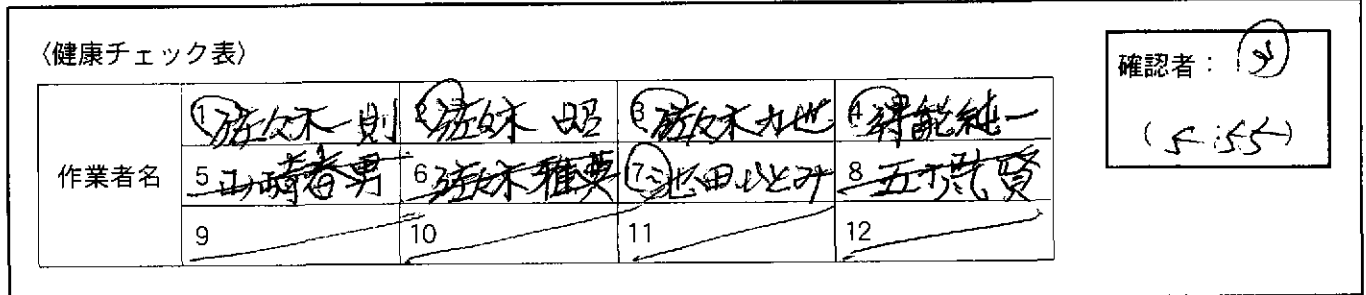 〈健康チェック表〉
確認者：
(5:55)
作業者名
1 佐々木一則 2 佐々木 昭 3 佐々木力也 4 得能純一
5 山崎春男 6 佐々木雅英 7 池田ひとみ 8 五十嵐賢
9 10 11 12